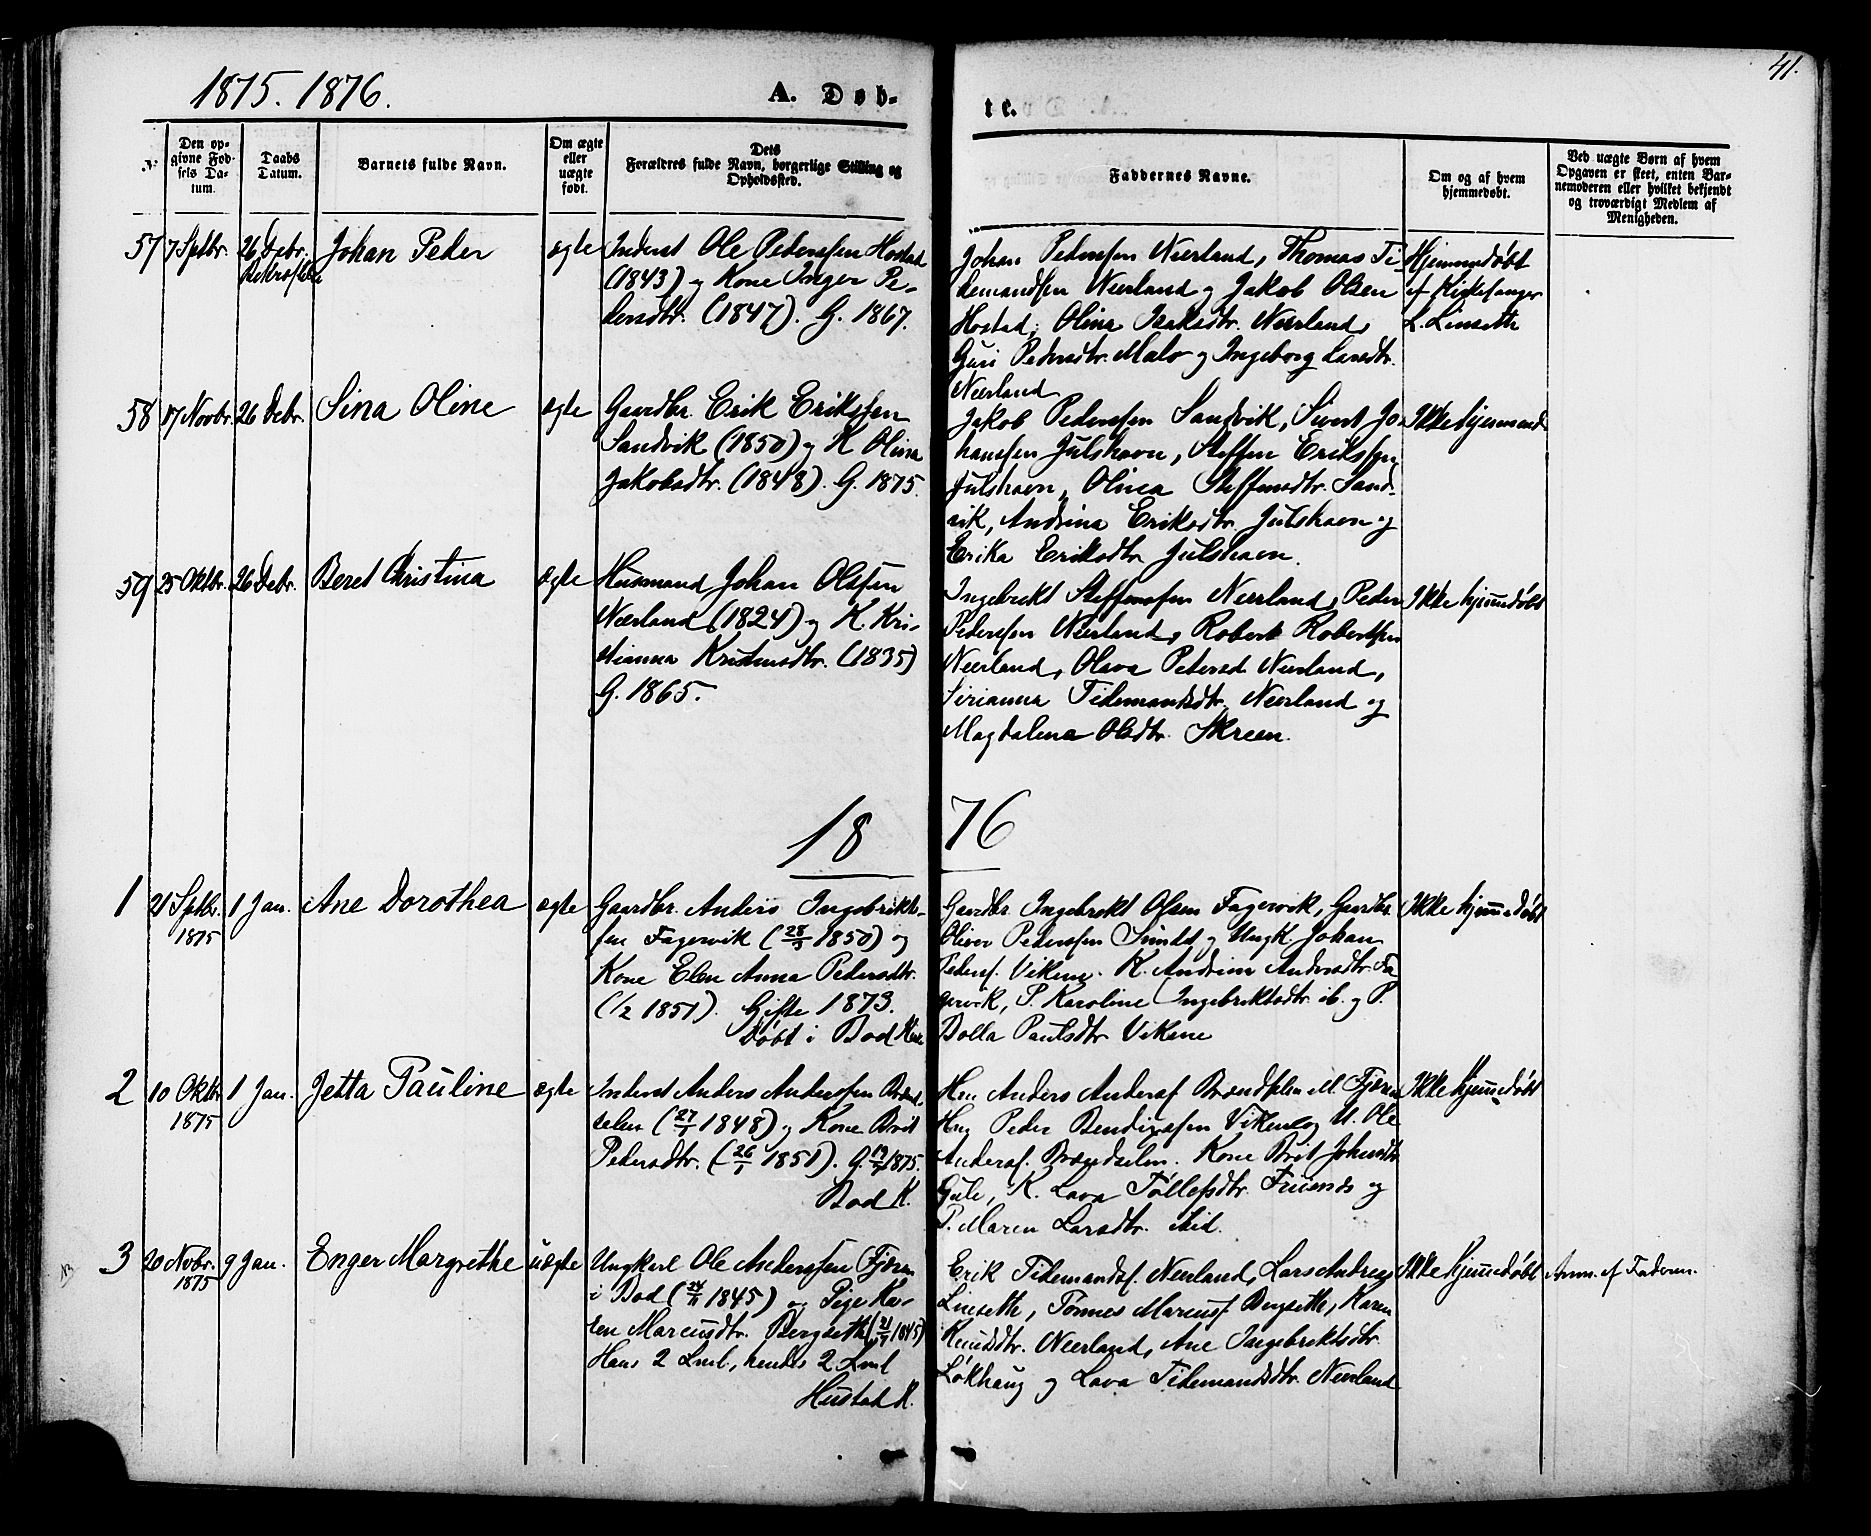 1875. 1876.
A. Døb-
te.
41.
№
Den op-
givne Fød-
sels Da-
tum.
Daabs
Datum.
Barnets fulde Navn.
Om ægte
eller
uægte
født.
Dets
Forældres fulde Navn, borgerlige Stilling og
Opholdssted.
Faddernes Navne.
Om og af hvem
hjemmedøbt.
Ved uægte Børn af hvem
Opgaven er skeet, enten Bar-
nemoderen eller hvilket bekjendt
og troværdigt Medlem af
Menigheden.
57 7 Sptbr. 26 Debr. Johan Peder ægte
Inderst Ole Pederssen Hostad
(1843) og Kone Inger Pe-
dersdtr. (1847). G. 1867.
Johan Pederssen Neerland, Thomas Ti-
demandsen Neerland og Jakob Olsen
Hostad, Olina Isaksdtr. Neerland,
Guri Pedersdtr. Malo og Ingeborg Larsdtr.
Neerland
Hjemmedøbt
af Kirkesanger
L. Linseth
58 17 Novbr. 26 Debr. Sina Oline ægte
Gaardbr. Erik Erikssen
Sandvik (1850) og K. Olina
Jakobsdtr. (1848). G. 1875.
Jakob Pederssen Sandvik, Sivert Jo-
hanssen Julshavn, Steffen Erikssen
Julshavn, Olina Steffensdtr. Sand-
vik, Andrina Eriksdtr. Julshavn og
Erika Eriksdtr. Julshavn.
Ikke hjemmed.
59 25 Oktbr. 26 Debr. Beret Christina ægte
Husmand Johan Olssen
Neerland (1824) og K. Kri-
stianna Kristensdtr. (1835)
G. 1865.
Ingebrekt Steffenssen Neerland, Peder
Pederssen Neerland, Robert Robertssen
Neerland, Olava Petersd. Neerland,
Sirianna Tidemandsdtr. Neerland og
Magdalena Olsdtr. Skreen.
Ikke hjemmedøbt
18 76
1 21 Sptbr. 1 Jan. Ane Dorothea ægte
1875
Gaardbr. Anders Ingebrikts-
sen Fagervik (28/3 1850) og
Kone Elen Anna Pedersdtr.
(1/2 1851). Gifte 1873.
Døbt i Bod Kirke
Gaardbr. Ingebrekt Olsen Fagervik, Gaardbr.
Oliver Pederssen Sundet og Ungk. Johan
Pederss. Vikene. K. Andrine Andersdtr. Fa-
gervik, P. Karoline Ingebriktsdtr. ib. og P.
Bolla Paulsdtr. Vikene
Ikke hjemmedøbt
2 10 Oktbr. 1 Jan. Jetta Pauline ægte
1875
Inderst Anders Anderssen Brænd-
selen (27/1 1848) og Kone Brit
Pedersdtr. (26/1 1851). G. 1875.
Bod K.
Hm. Anders Anderss. Brændselen
Peder Vikene og U. Ole
Anderss. Brændselen. Kone Brit Johnsdtr.
K. Lava Tøllefsdtr. og
P. Maren Larsdtr.
Ikke hjemmedøbt
3 20 Novbr. 9 Jan. Enger Margrethe uægte
1875
Ungkarl Ole Anderssen Fjæren
i Bod (24/11 1845) og Pige Ka-
ren Marcusdtr. Bergseth (1845)
Hans 2 Lml., hendes 2 Lml
Hustad K.
Erik Tidemandss. Neerland, Lars Andreas
Linseth, Tønnes Marcuss. Bergseth, Karen
Knudsdtr. Neerland, Ane Ingebriktsdtr.
Løkhaug og Lava Tidemandsdtr. Neerland
Ikke hjemmedøbt
Anm. af Faderen.